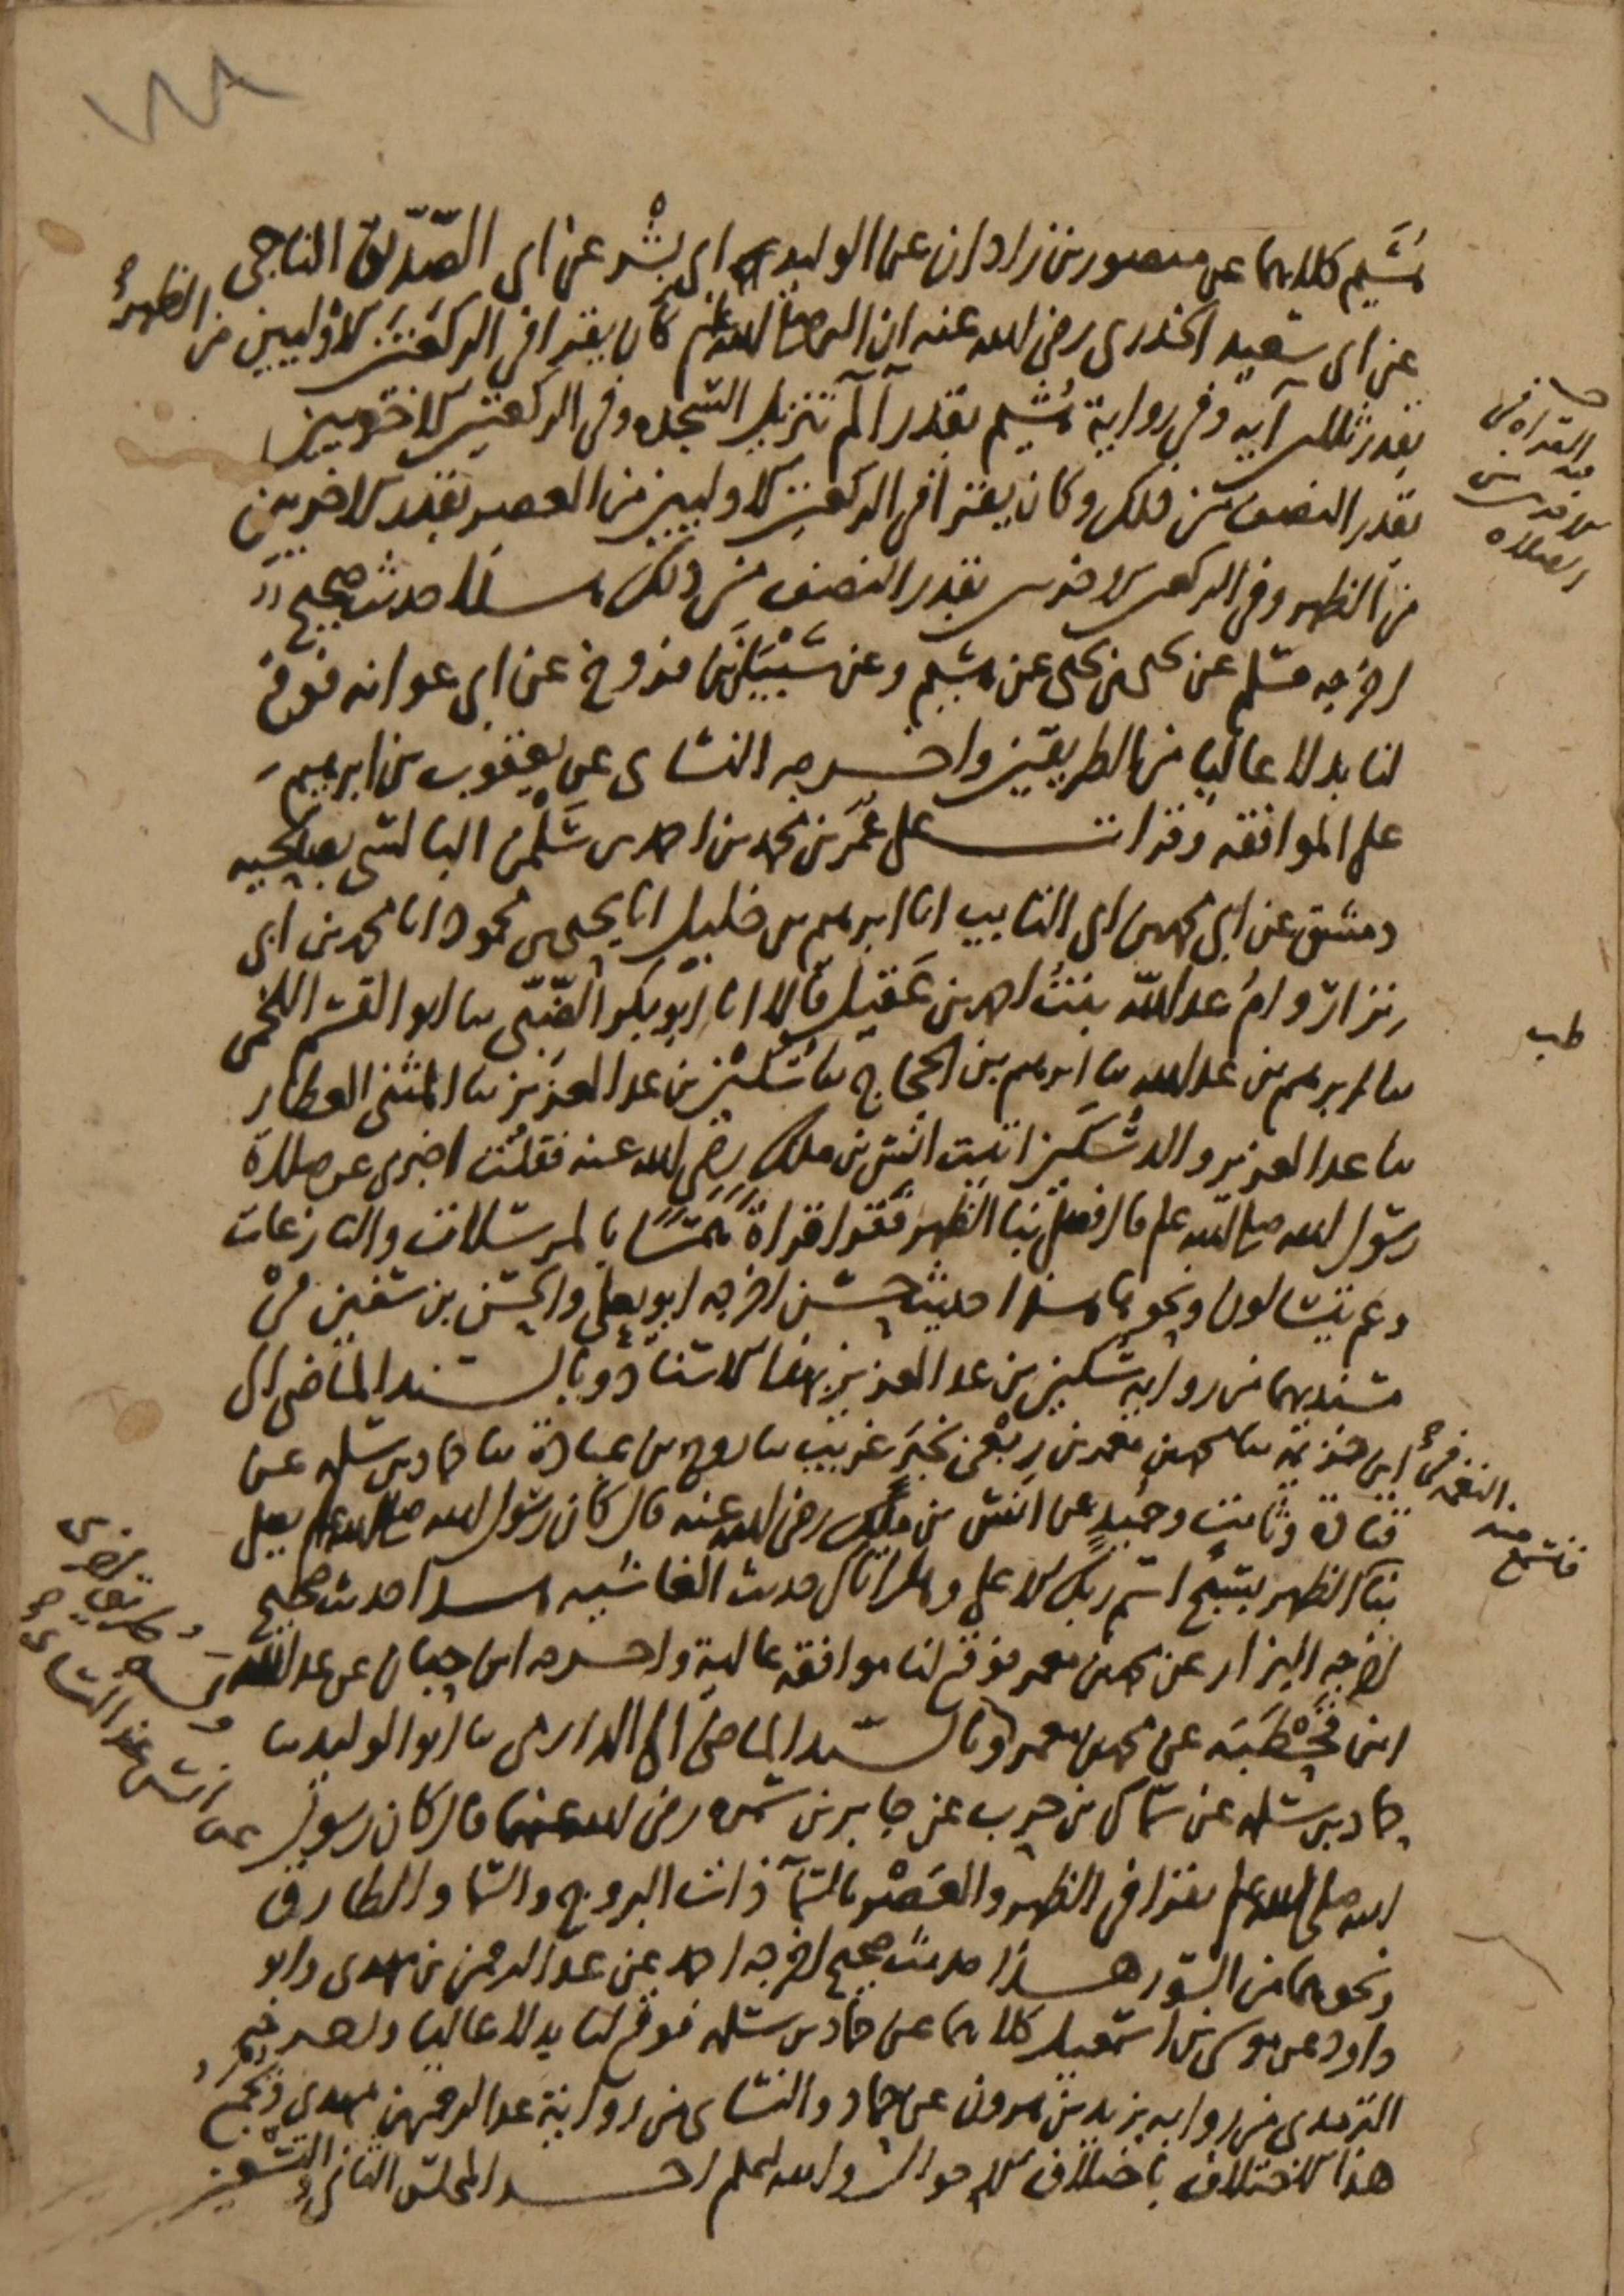 هشيم كلاهما عن منصور بن زاذان عن الوليد ابي بشر عن ابي الصديق الناجي
عن ابي سعيد الخدري رضي الله عنه ان النبي صلى الله عليه وسلم كان يقرا في الركعتين الاوليين من الظهر
بقدر ثلاثين آية وفي رواية هشيم بقدر آلم تنزيل السجده وفي الركعتين الاخريين
بقدر النصف من ذلك وكان يقرا في الركعتين الاوليين من العصر بقدر الاخريين
من الظهر وفي الركعتين الاخريين بقدر النصف من ذلك هذا حديث صحيح
اخرجه مسلم عن يحيى بن يحيى عن هشيم وعن شيبان بن فروخ عن ابي عوانه فوقع
لنا بدلا عاليا من الطريقين واخرجه النساى عن يعقوب بن ابرهيم
على الموافقه وقرات على عمر بن محمد بن احمد بن سلمن البالسي بصالحيه
دمشق عن ابي محمد بن ابي التايب انا ابرهيم بن خليل انا يحيى بن محمود انا محمد بن ابي
نزار وام عبد الله بنت احمد بن عقيل قالا انا ابو بكر الضبي نا ابو القسم اللخمي
نا ابرهيم بن عبد الله نا ابرهيم بن الحجاج نا سكين بن عبد العزيز نا المثنى العطار
نا عبد العزيز والد سكين اتيت انس بن ملك رضي الله عنه فقلت اخبرني عن صلاة
رسول الله صلى الله عليه قال فصلى بنا الظهر فقرا قراة همسا بالمرسلات والنازعات
وعم يتسالون ونحوها هذا حديث حسن اخرجه ابو يعلى والحسن بن سفين في
مسنديهما من رواية سكين بن عبد العزيز بهذا الاسناد وبالسند الماضي الى
ابن خزيمة نا محمد بن معمر بن ربعي نا روح بن عبادة نا حماد بن سلمه عن
قتادة وثابت وحميد عن انس بن ملك رضي الله عنه قال كان رسول الله صلى الله عليه يصلي
بنا الظهر بسبح اسم ربك الاعلى وهل اتاك حديث الغاشيه هذا حديث صحيح
اخرجه البزار عن محمد بن معمر فوقع لنا موافقه عالية واخرجه ابن حبان عن عبد الله
ابن قحطبه عن محمد بن معمر وبالسند الماضي الى الدارمي نا ابو الوليد نا
حماد بن سلمه عن سماك بن حرب عن جابر بن سمره رضي الله عنهما قال كان رسول
الله صلى الله عليه يقرا في الظهر والعصر بالسمآ ذات البروج والسما والطارق
ونحوهما من السور هذا حديث صحيح اخرجه احمد عن عبد الرحمن بن مهدي وابو
داود عن موسى بن اسمعيل كلاهما عن حماد بن سلمه فوقع لنا بدلا عاليا واخرجه
الترمذي من رواية يزيد بن هرون عن حماد والنساى من رواية عبد الرحمن بن مهدي ويجمع
هذا الاختلاف باختلاف الاحوال والله اعلم اخر المجلس الثاني والتسعين
القراه في
الصلاه
طب